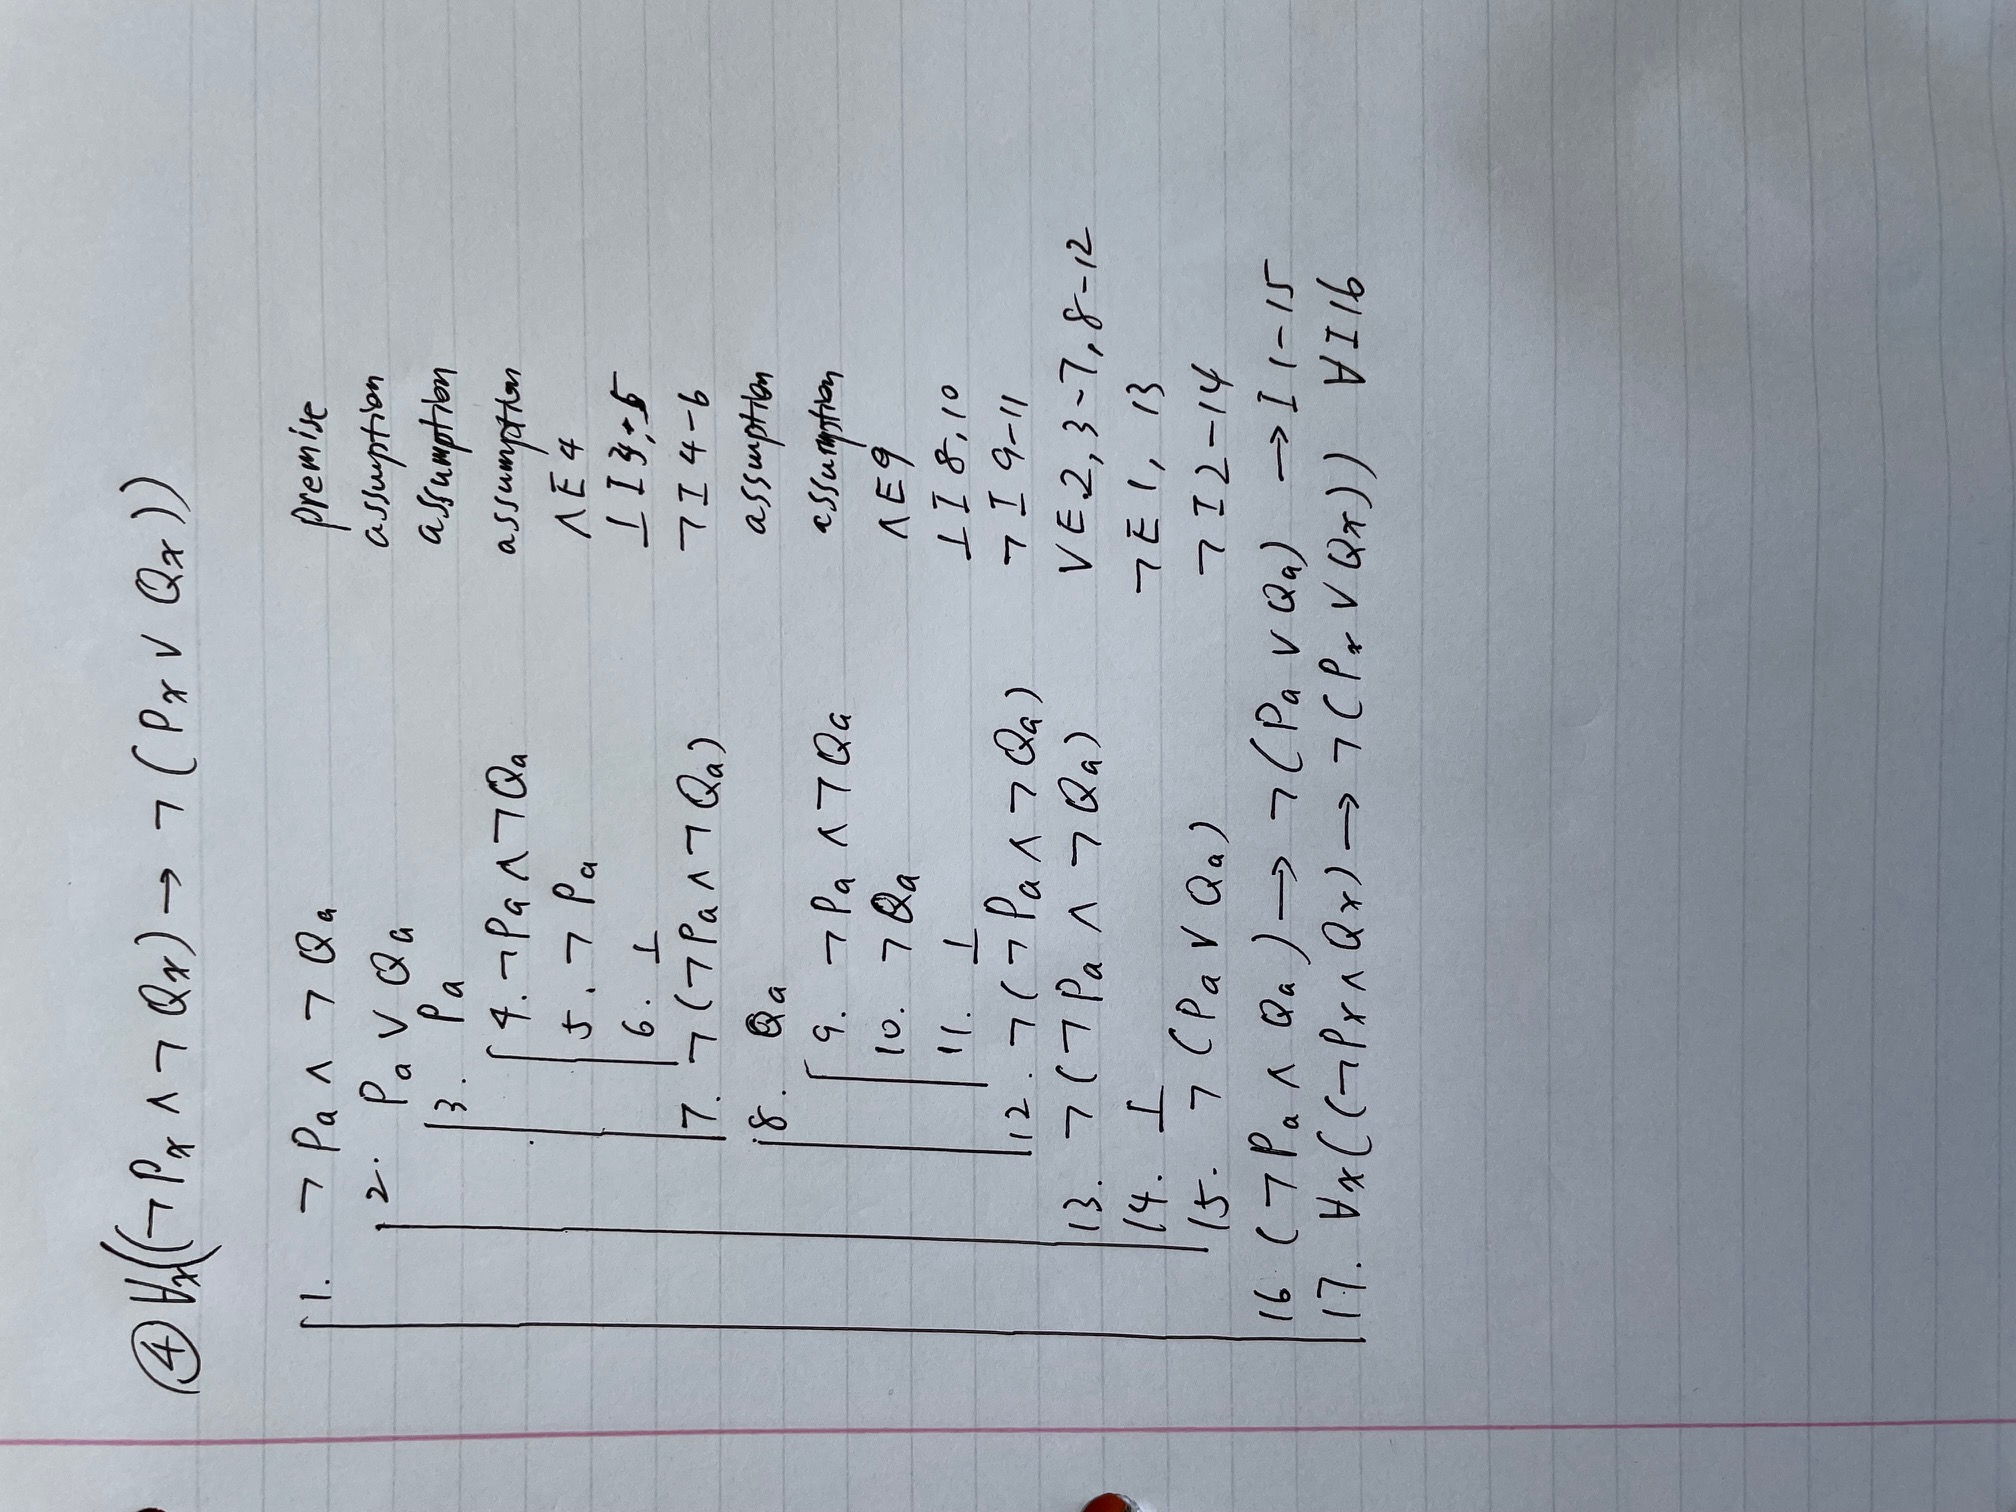 ④ ∀x((¬Px ∧ ¬Qx) → ¬(Px ∨ Qx))
1. ¬Pa ∧ ¬Qa premise
2. Pa ∨ Qa assumption
3. Pa assumption
4. ¬Pa ∧ ¬Qa assumption
5. ¬Pa ∧E 4
6. ⊥ ⊥I 3, 5
7. ¬(¬Pa ∧ ¬Qa) ¬I 4-6
8. Qa assumption
9. ¬Pa ∧ ¬Qa assumption
10. ¬Qa ∧E 9
11. ⊥ ⊥I 8, 10
12. ¬(¬Pa ∧ ¬Qa) ¬I 9-11
13. ¬(¬Pa ∧ ¬Qa) ∨E 2, 3-7, 8-12
14. ⊥ ¬E 1, 13
15. ¬(Pa ∨ Qa) ¬I 2-14
16 (¬Pa ∧ Qa) → ¬(Pa ∨ Qa) →I 1-15
17. ∀x((¬Px ∧ Qx) → ¬(Px ∨ Qx)) ∀I 16